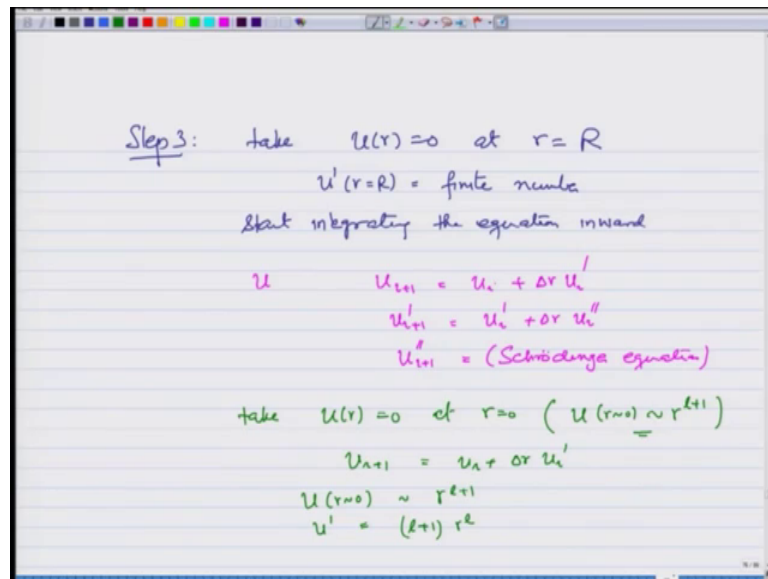 Step 3: take u(r) = 0 at r = R
u'(r=R) = finite number
Start integrating the equation inward
u u_{i+1} = u_i + Δr u_i'
u'_{i+1} = u_i' + Δr u_i''
u''_{i+1} = (Schrödinger equation)
take u(r) = 0 at r=0 ( u(r~0) ~ r^{l+1} )
u_{i+1} = u_i + Δr u_i'
u(r~0) ~ r^{l+1}
u' = (l+1) r^l